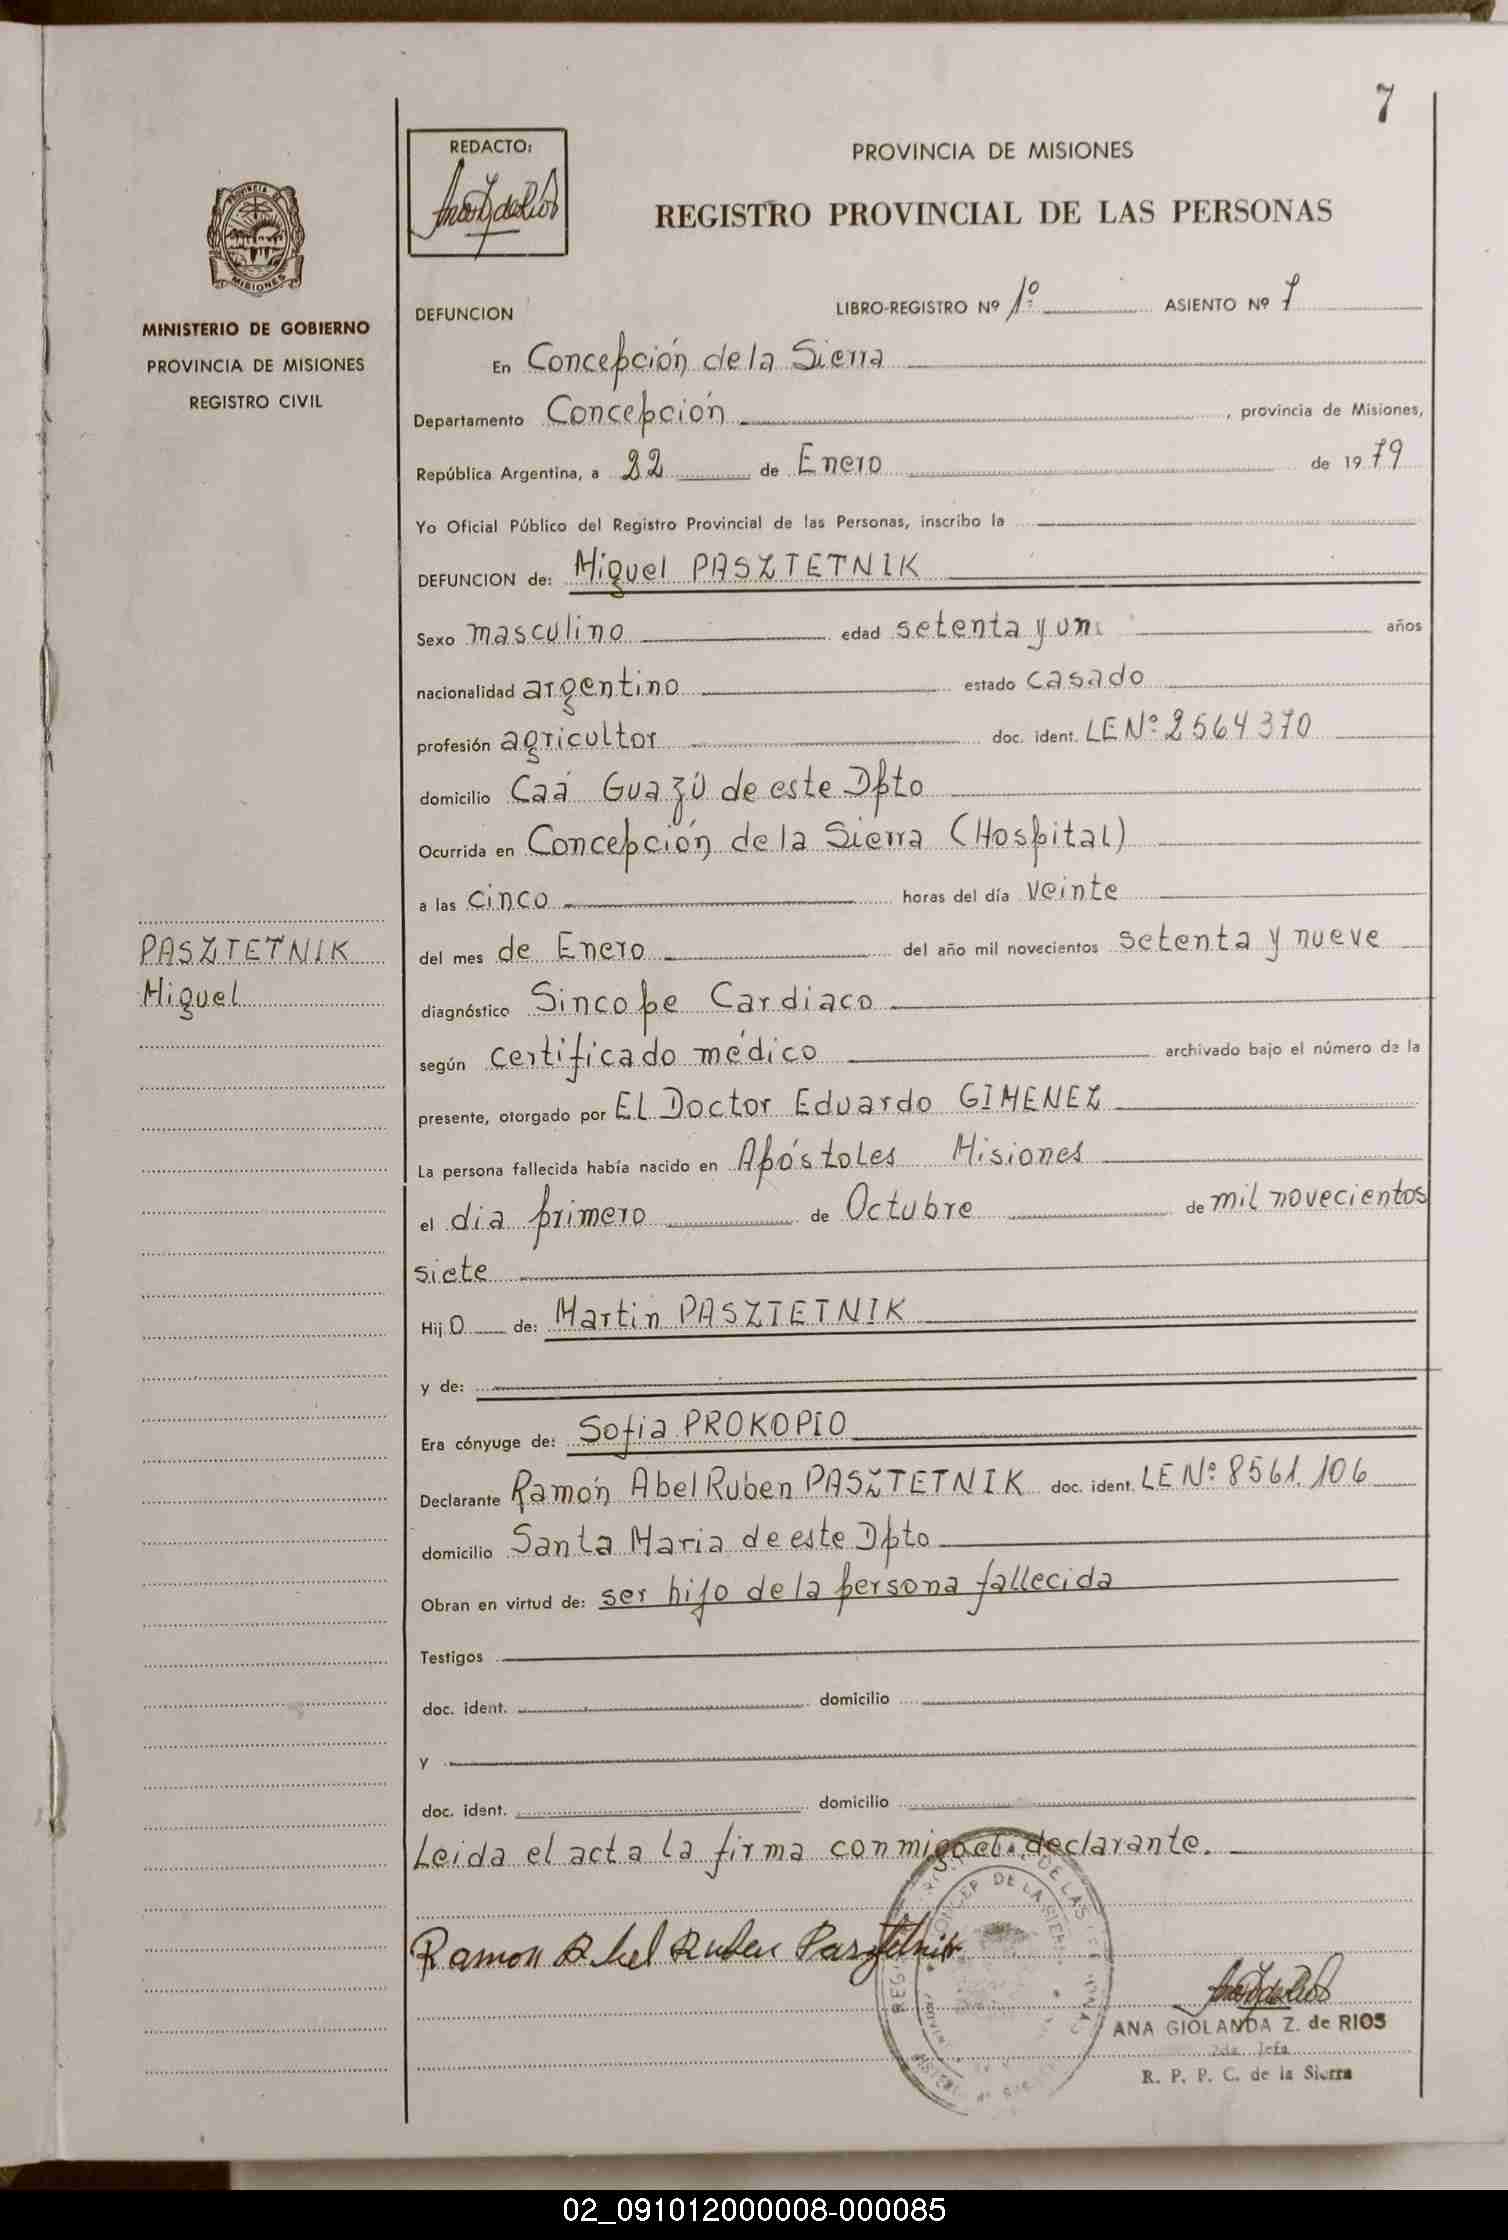 7
REDACTO:
PROVINCIA DE MISIONES
REGISTRO PROVINCIAL DE LAS PERSONAS
PROVINCIA DE
MISIONES
MINISTERIO DE GOBIERNO
PROVINCIA DE MISIONES
REGISTRO CIVIL
DEFUNCION LIBRO-REGISTRO Nº 1º ASIENTO Nº 7
En Concepción de la Sierra
Departamento Concepción, provincia de Misiones,
República Argentina, a 22 de Enero de 1979
Yo Oficial Público del Registro Provincial de las Personas, inscribo la
DEFUNCION de: Miguel PASZTETNIK
Sexo masculino edad setenta y un años
nacionalidad argentino estado casado
profesión agricultor doc. ident. LE Nº 2564370
domicilio Caá Guazú de este Dpto
Ocurrida en Concepción de la Sierra (Hospital)
a las cinco horas del día veinte
PASZTETNIK
Miguel
del mes de Enero del año mil novecientos setenta y nueve
diagnóstico Sincope Cardiaco
según certificado médico archivado bajo el número de la
presente, otorgado por EL Doctor Eduardo GIMENEZ
La persona fallecida había nacido en Apóstoles Misiones
el dia primero de Octubre de mil novecientos
siete
Hijo de: Martin PASZTETNIK
y de:
Era cónyuge de: Sofia PROKOPIO
Declarante Ramón Abel Ruben PASZTETNIK doc. ident. LE Nº 8561.106
domicilio Santa Maria de este Dpto
Obran en virtud de: ser hijo de la persona fallecida
Testigos
doc. ident. domicilio
y
doc. ident. domicilio
Leida el acta la firma conmigo el declarante.
Ramon Abel Ruben Pasztetnik
ANA GIOLANDA Z. de RIOS
2da. Jefa
R. P. P. C. de la Sierra
02_091012000008-000085